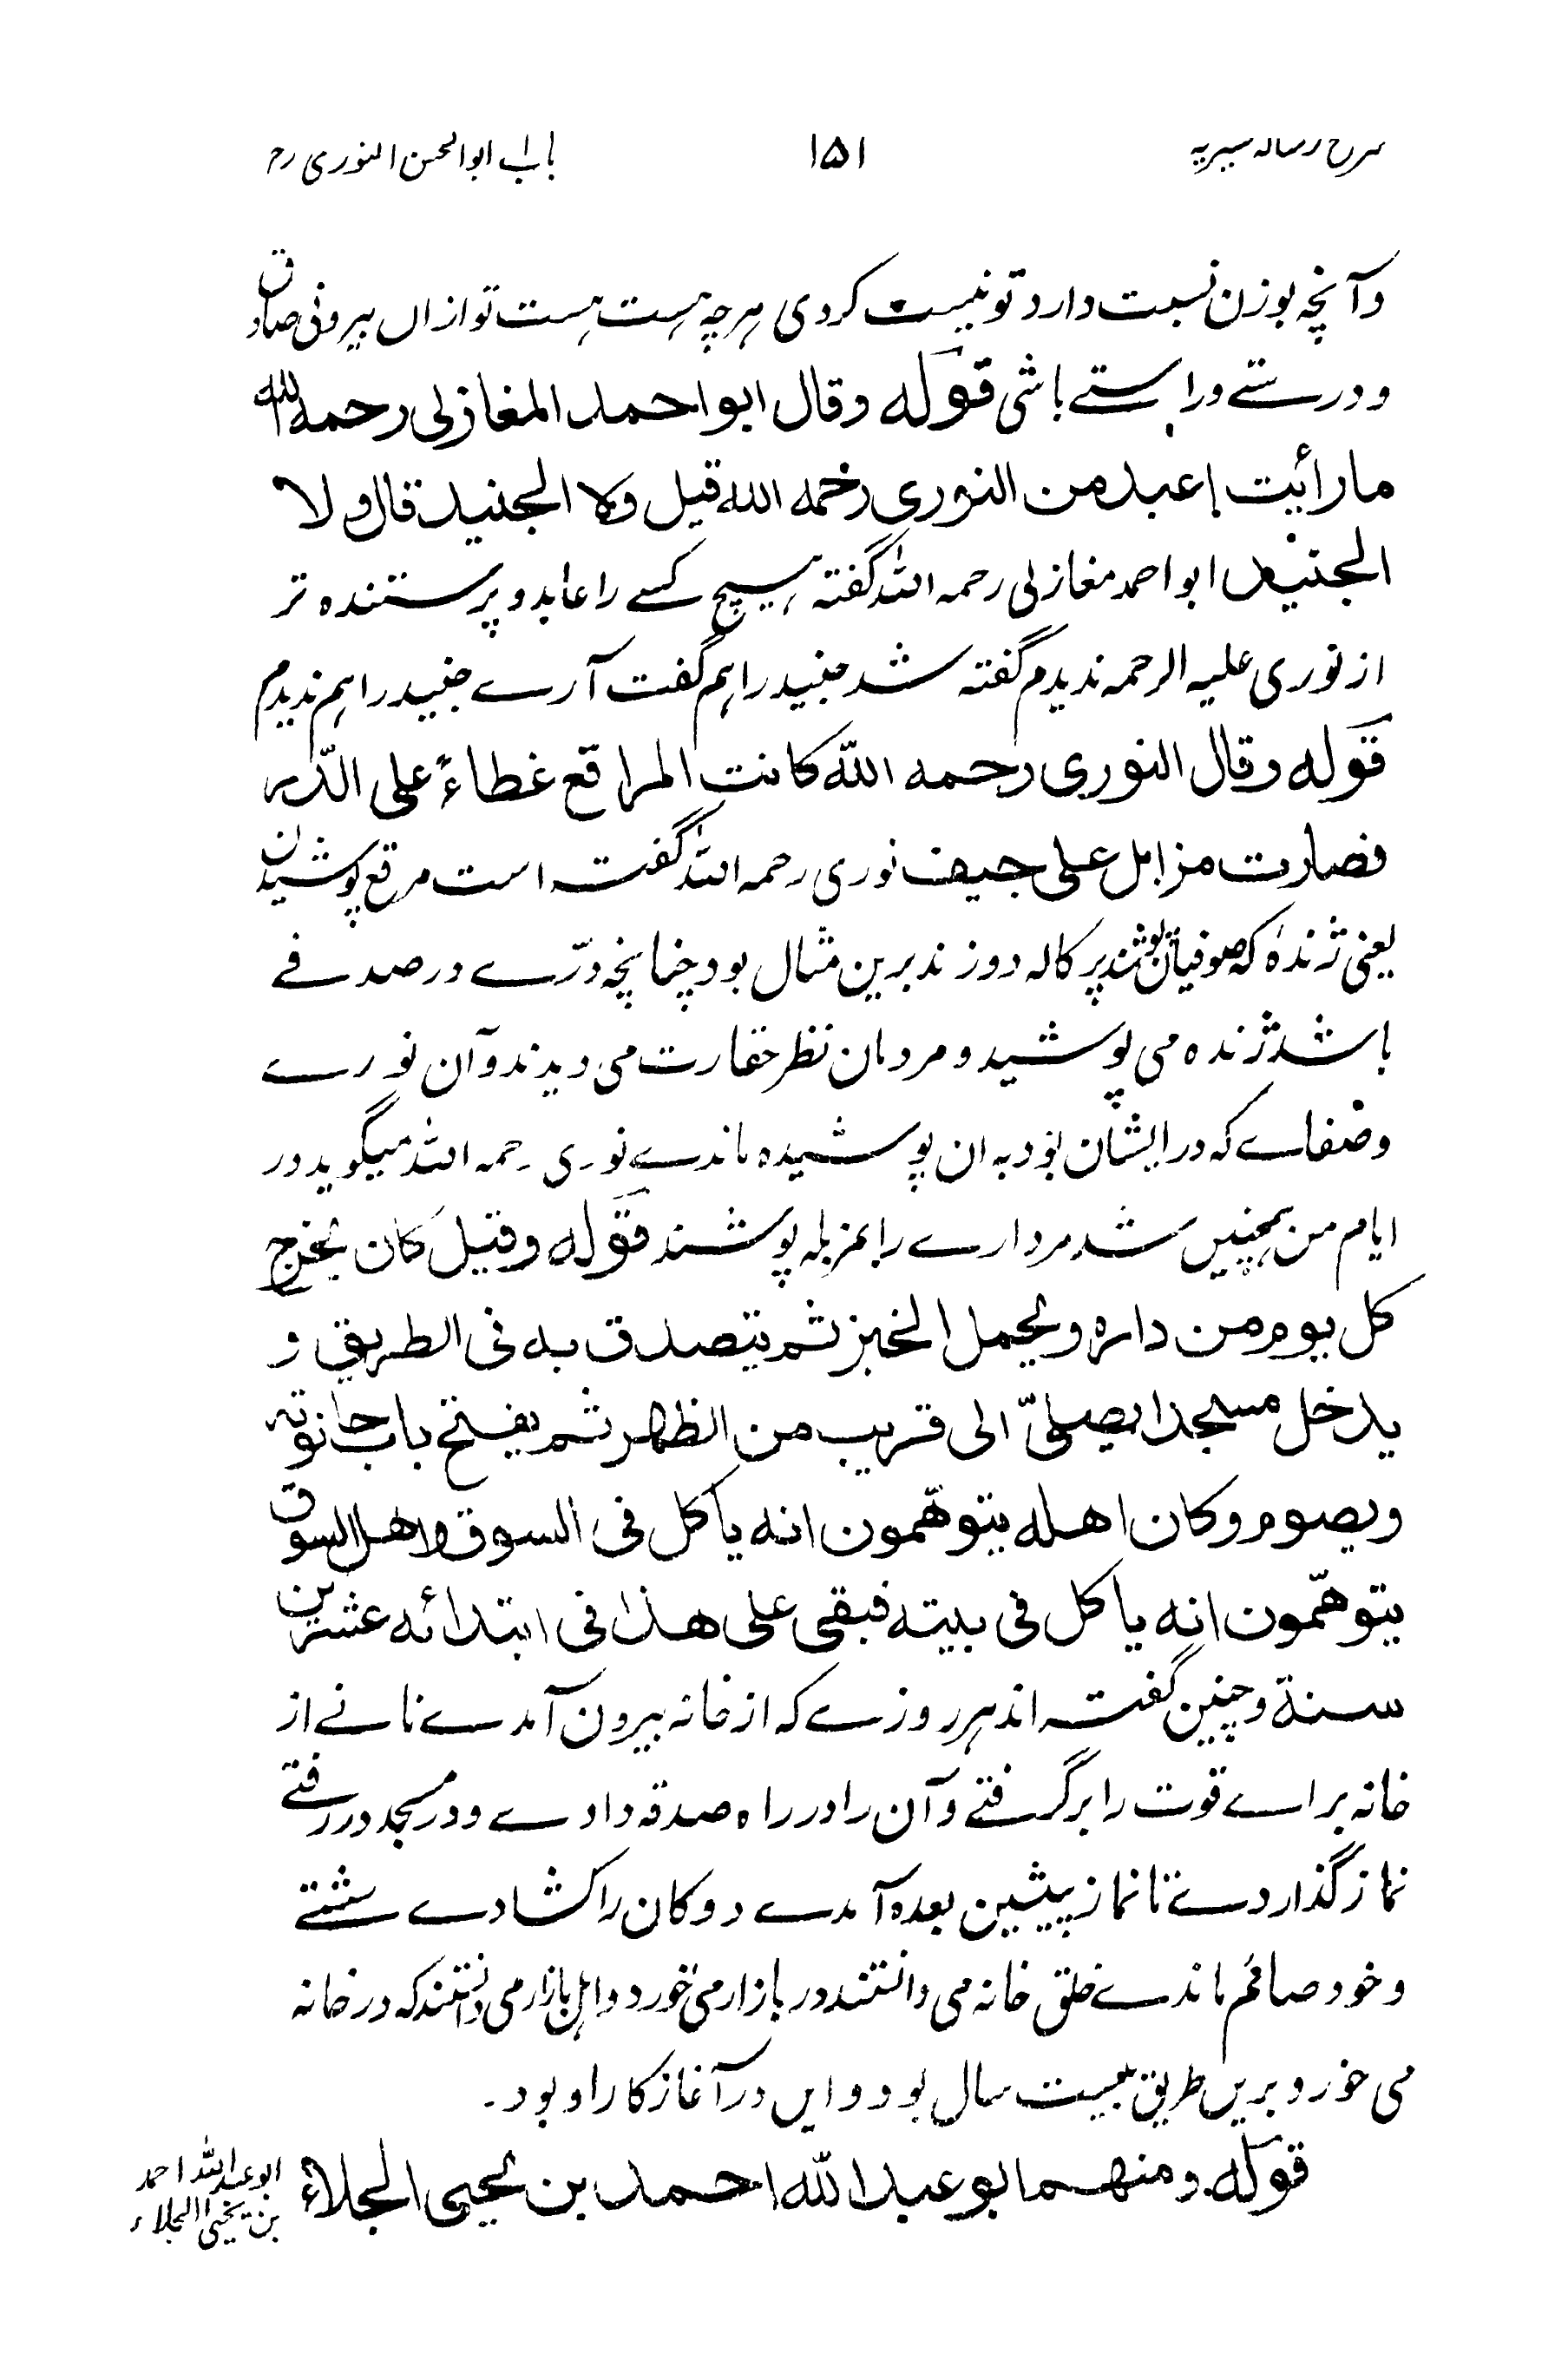 شرح رساله قشیریه ۱۵۱ باب ابوالحسن النوری رح
وآنچه بوزن نسبت دارد تو نیست کردی هرچه هست هست تو ازاں بیرونی صادق
و درستے و راستے باشی قوله وقال ابو احمد المغازلی رحمه الله
ما رأیت اعبد من النوری رحمه الله قیل ولا الجنید قال ولا
الجنید ابو احمد مغازلی رحمه الله گفته هیچ کسے را عابد و پرستنده تر
از نوری علیه الرحمه ندیدم گفته شد جنید را هم گفت آرے جنید را هم ندیدم
قوله وقال النوری رحمه الله کانت المراقع غطاءً علی الدّر
فصارت مزابل علی جیف نوری رحمه الله گفته است مرقع پوشیدن
یعنی ژنده که صوفیان پوشند پرکاله دوزند برین مثال بود چنانچه درّے در صدفے
باشد ژنده می پوشید و مردمان نظر حقارت می دیدند و آن نورے
وصفاے که در ایشان بود به ان پوشیده ماندے نوری رحمه الله میگوید در
ایام من همچنیں شد مردارے را بمزبله پوشند قوله وقیل کان یخرج
کل یوم من داره ویحمل الخبز ثم یتصدق به فی الطریق و
یدخل مسجدا یصلیّ الی قریب من الظهر ثم یفتح باب حانوته
ویصوم وکان اهله یتوهّمون انه یاکل فی السوق واهل السوق
یتوهّمون انه یاکل فی بیته فبقی علی هذا فی ابتدائه عشرین
سنة وچنین گفته اند هر روزے که از خانه بیرون آمدے نانے از
خانه براے قوت را برگرفتے و آن را در راه صدقه دادے و در مسجد در رفتے
نماز گذاردے تا نماز پیشین بعده آمدے دوکان را کشادے نشستے
و خود صائم ماندے خلق خانه می دانستند در بازار می خورد و اهل بازار می دانستند که در خانه
می خورد بریں طریق بیست سال بود و ایں در آغاز کار او بود۔
قوله ومنهم ابو عبد الله احمد بن یحیی الجلاء
ابو عبد الله احمد
بن یحیی الجلاء